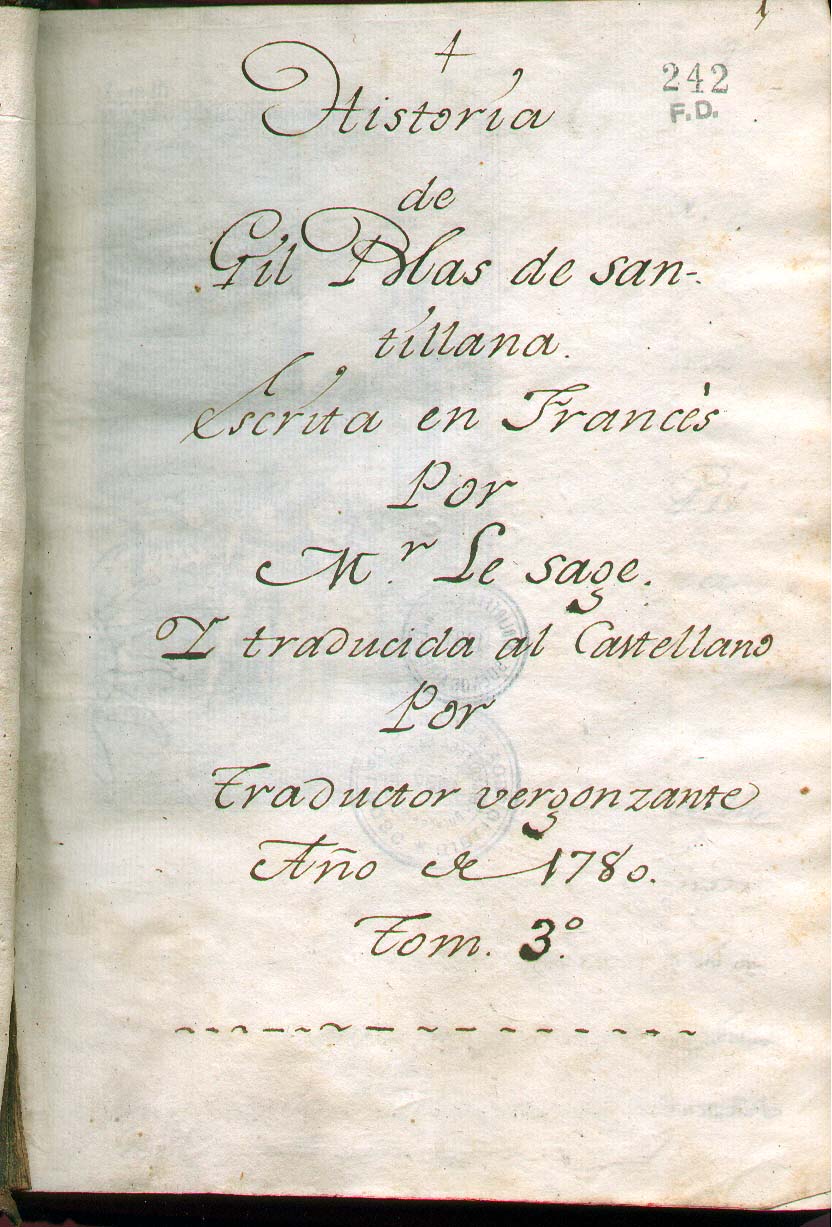 242
F.D.
Historia
de
Gil Blas de san-
tillana.
Escrita en Francès
Por
M.r Le sage.
Y traducida al Castellano
Por
Traductor vergonzante
Año de 1780.
Tom. 3.º